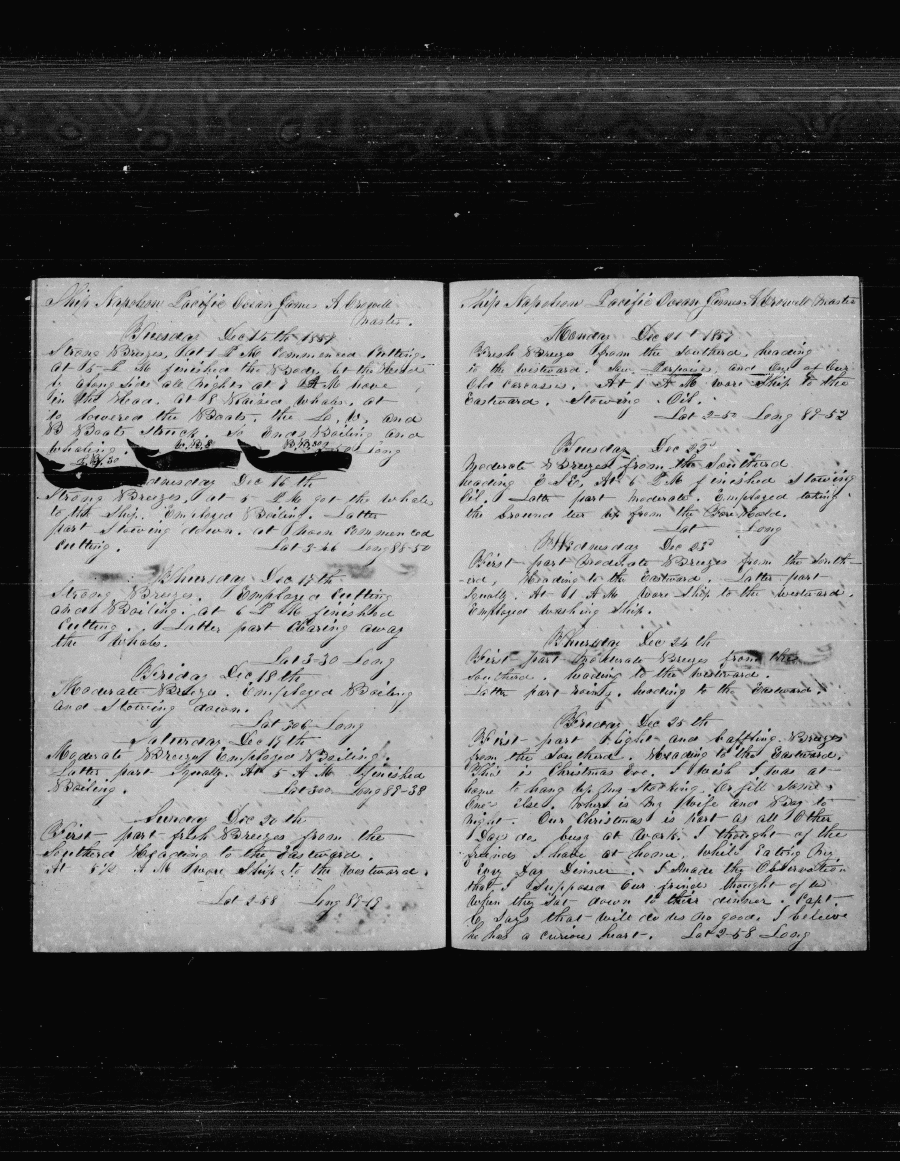 Ship Napoleon Pacific Ocean James A Crowell
Master.
Tuesday Dec 15th 1857
Strong Breezes, at 1 P M Commenced Cutting.
at 5 P M finished the Body, let the Head
by along side all night. at 7 A M have
in the Head. at 8 Raised whales, at
to lowered the Boats, the and
B Boats Struck. So Ends Boiling and
whaling. Long
Wednesday Dec 16th
Strong Breezes, at 5 P M got the whale
to the Ship. Employed Boiling. Latter
part Stowing down. at Noon Commenced
Cutting. Lat 3-26 Long 88-50
Thursday Dec 17th
Strong Breezes. Employed Cutting
and Boiling. at 6 P M finished
Cutting. Latter part Clearing away
the whale.
Lat 3-30 Long
Friday Dec 18th
Moderate Breezes. Employed Boiling
and Stowing down.
Lat 306 Long
Saturday Dec 19th
Moderate Breezes Employed Boiling.
Latter part Squally. At 5 A M finished
Boiling. Lat 300 Long 89-38
Sunday Dec 20th
First part fresh Breezes from the
Southerd Heading to the Eastward.
At 5½ A M wore Ship to the westward.
Lat 2-58 Long 89-19
Ship Napoleon Pacific Ocean James A Crowell Master
Monday Dec 21st 1857
Fresh Breezes from the Southerd, heading
to the westward. Saw Porpoises, and one of our
Old Carcasses. At 1 A M wore Ship to the
Eastward. Stowing Oil.
Lat 2-50 Long 89-52
Tuesday Dec 22d
Moderate Breezes from the Southerd
heading E S E, At 6 P M finished Stowing
Oil. Latter part moderate. Employed taking
the Ground tier up from the Fore Hold.
Lat Long
Wednesday Dec 23d
First part Moderate Breezes from the South-
-erd, Heading to the Eastward. Latter part
Squally. At 11 A M wore Ship to the westward.
Employed washing Ship.
Thursday Dec 24th
First part moderate Breezes from the
Southerd. heading to the westward.
Latter part rainy. heading to the Eastward.
Friday Dec 25th
First part light and baffling Breezes
from the Southerd. Heading to the Eastward.
This is Christmas Eve. I wish I was at
home to hang up my Stocking. Or fill some
One else. Where is my Wife and Boy to
night. Our Christmas is kept as all Other
Days do, busy at work. I thought of the
friends I have at home, While Eating Our
Every Day Dinner. I made the Observation
that I Supposed Our friends thought of us
When they Sat down to their dinner. Capt.
C, Says that will do us no good. I believe
he has a curious heart. Lat 2-58 Long